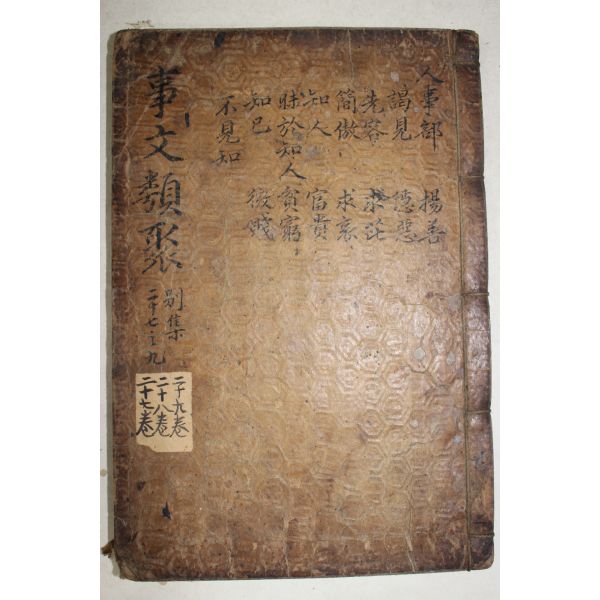 人事部 揚善
謁見 隱惡
先容 求託
簡傲 求哀
知人 富貴
昧於知人 貧窮
知己 微賤
不見知
事文類聚 別集 二十七之九
二十九卷
二十八卷
二十七卷